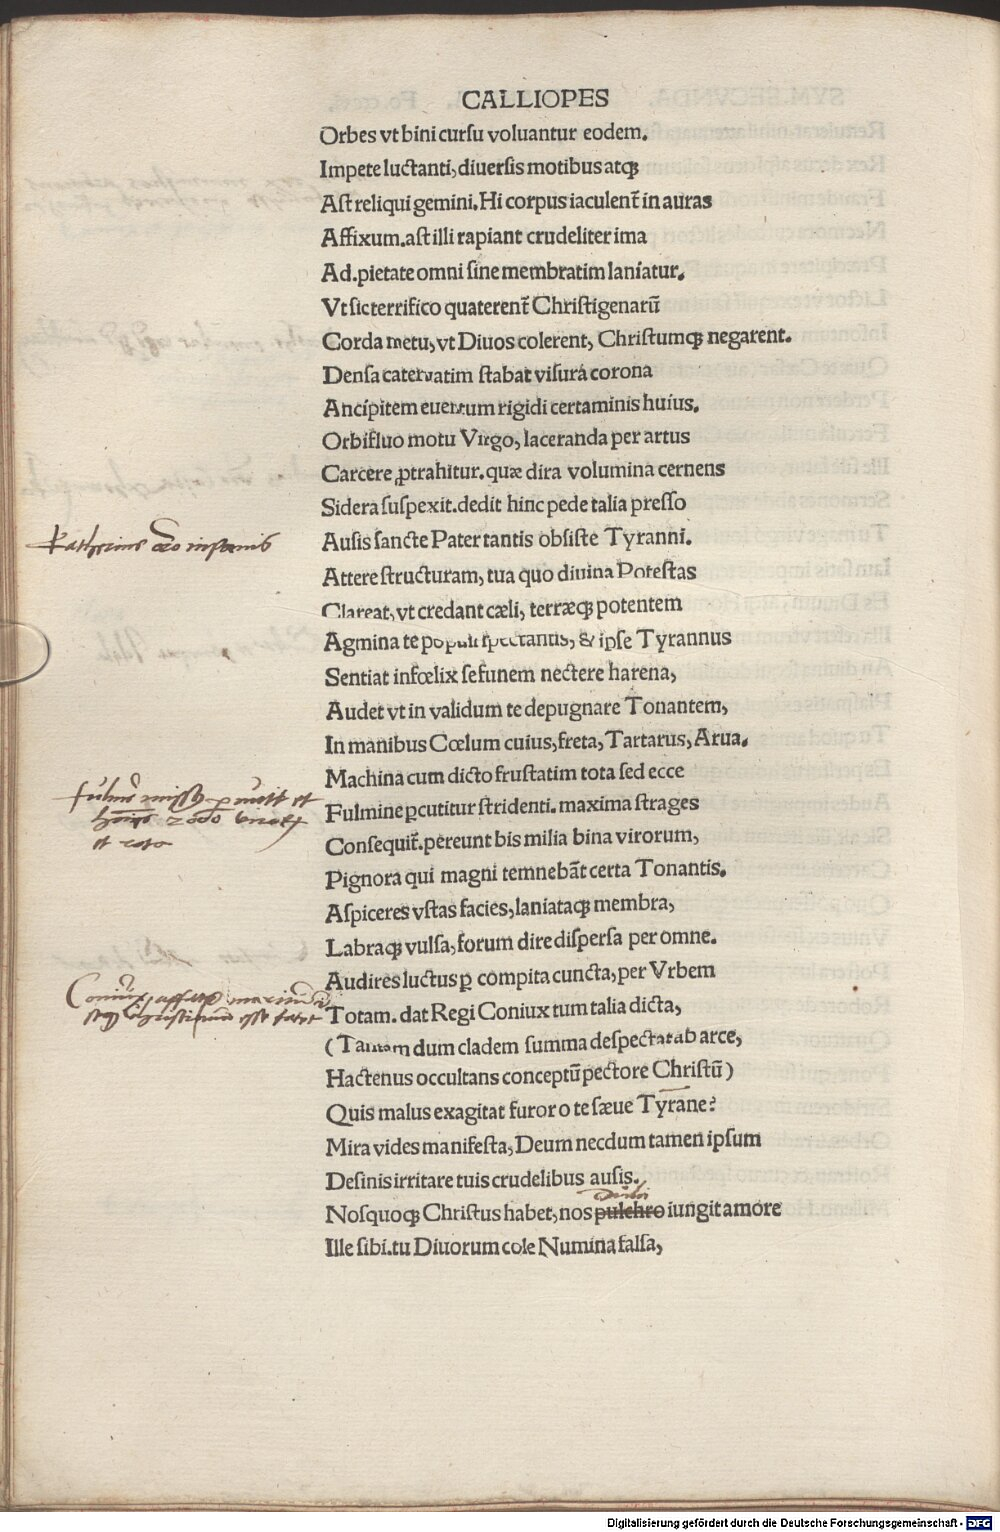 CALLIOPES
Orbes vt bini cursu voluantur eodem.
Impete luctanti, diuersis motibus atqꝫ
Ast reliqui gemini. Hi corpus iaculent̃ in auras
Affixum. ast illi rapiant crudeliter ima
Ad. pietate omni sine membratim laniatur.
Vt sic terrifico quaterent̃ Christigenarũ
Corda metu, vt Diuos colerent, Christumqꝫ negarent.
Densa cateruatim stabat visura corona
Ancipitem euentum rigidi certaminis huius.
Orbifluo motu Virgo, laceranda per artus
Carcere ꝓtrahitur. quæ dira volumina cernens
Sidera suspexit. dedit hinc pede talia presso
Ausis sancte Pater tantis obsiste Tyranni.
Attere structuram, tua quo diuina Potestas
Clareat, vt credant cæli, terræqꝫ potentem
Agmina te populi spectantis, & ipse Tyrannus
Sentiat infœlix se funem nectere harena,
Audet vt in validum te depugnare Tonantem,
In manibus Cœlum cuius, freta, Tartarus, Arua.
Machina cum dicto frustatim tota sed ecce
Fulmine ꝑcutitur stridenti. maxima strages
Consequit̃. pereunt bis milia bina virorum,
Pignora qui magni temnebãt certa Tonantis.
Aspiceres vstas facies, laniataqꝫ membra,
Labraqꝫ vulsa, forum dire dispersa per omne.
Audires luctus ꝑ compita cuncta, per Vrbem
Totam. dat Regi Coniux tum talia dicta,
(Tantam dum cladem summa despectat ab arce,
Hactenus occultans conceptũ pectore Christũ)
Quis malus exagitat furor o te sæue Tyrane?
Mira vides manifesta, Deum necdum tamen ipsum
Desinis irritare tuis crudelibus ausis.
Nosquoqꝫ Christus habet, nos pulchro iungit amore
Ille sibi. tu Diuorum cole Numina falsa,
Digitalisierung gefördert durch die Deutsche Forschungsgemeinschaft - DFG